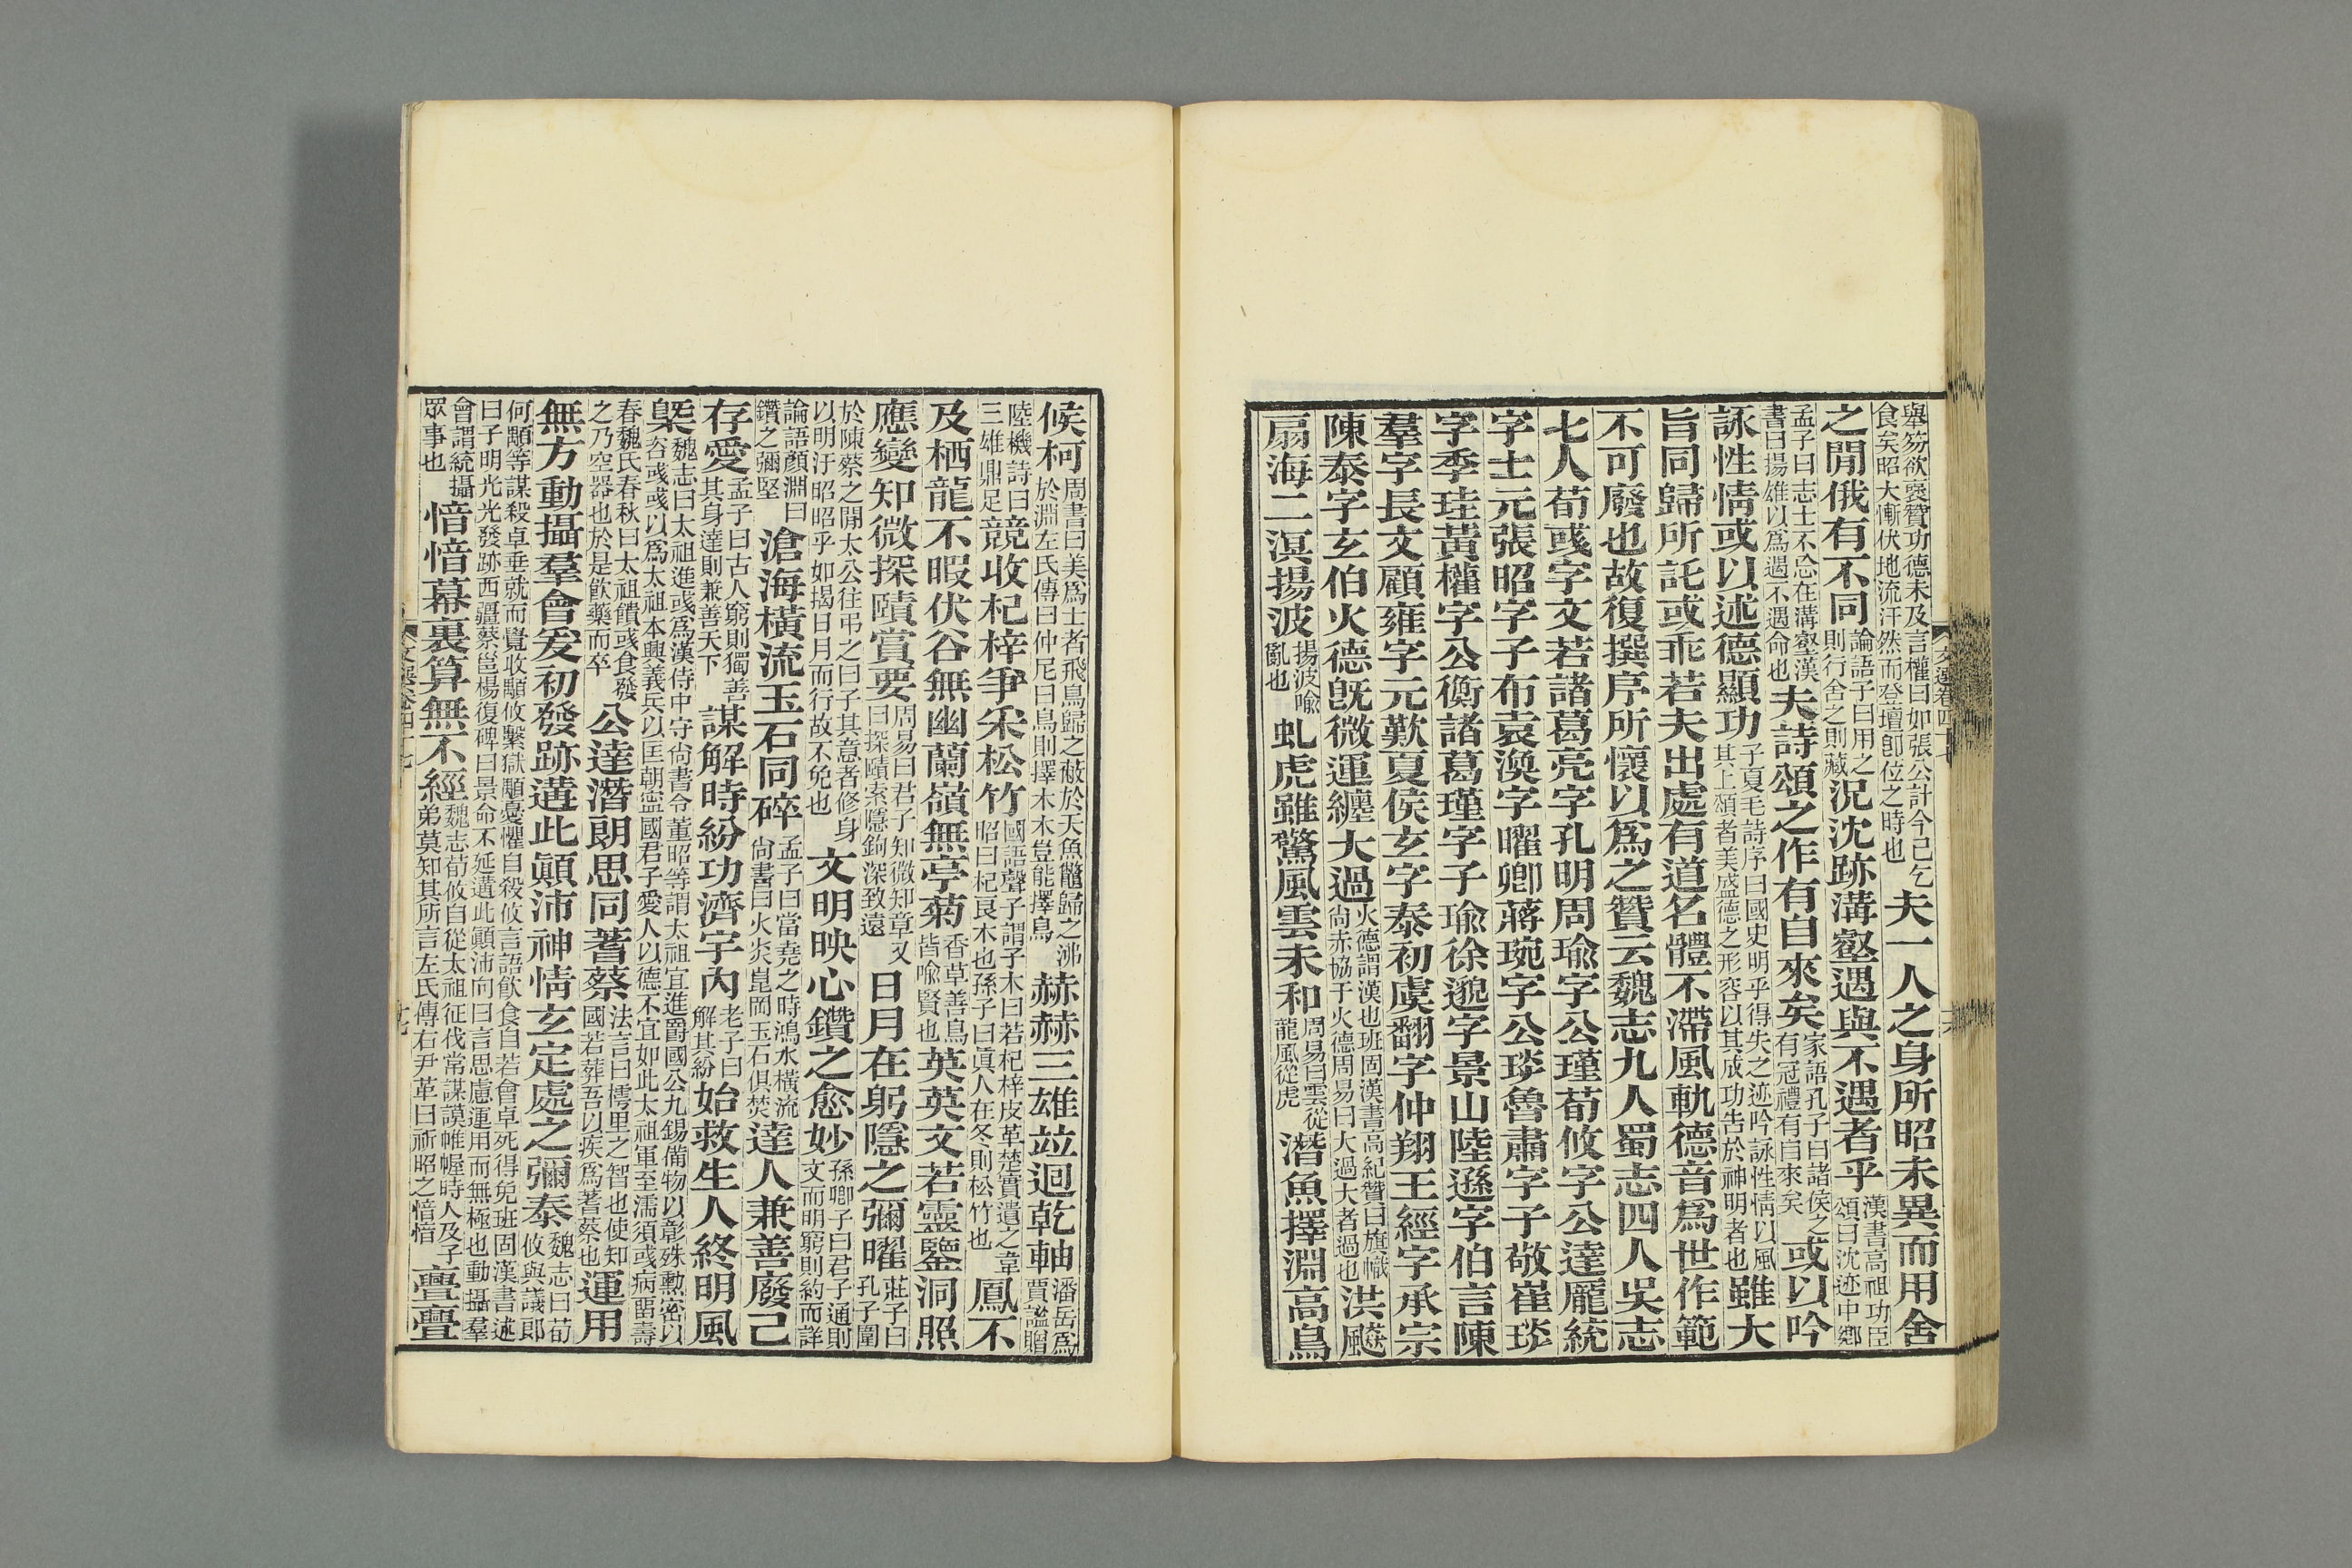 舉笏欲褒贊功德未及言權曰如張公計今已乞
食矣昭大慚伏地流汗然而登壇卽位之時也
夫一人之身所昭未異而用舍
之閒俄有不同
論語子曰用之
則行舍之則藏
況沈跡溝壑遇與不遇者乎
漢書高祖功臣
頌曰沈迹中鄉
孟子曰志士不忘在溝壑漢
書曰揚雄以爲遇不遇命也
夫詩頌之作有自來矣
家語孔子曰諸侯之
有冠禮有自來矣
或以吟
詠性情或以述德顯功
子夏毛詩序曰國史明乎得失之迹吟詠性情以風
其上頌者美盛德之形容以其成功告於神明者也
雖大
旨同歸所託或乖若夫出處有道名體不滯風軌德音爲世作範
不可廢也故復撰序所懷以爲之贊云魏志九人蜀志四人吳志
七人荀彧字文若諸葛亮字孔明周瑜字公瑾荀攸字公達龐統
字士元張昭字子布袁渙字曜卿蔣琬字公琰魯肅字子敬崔琰
字季珪黃權字公衡諸葛瑾字子瑜徐邈字景山陸遜字伯言陳
羣字長文顧雍字元歎夏侯玄字泰初虞翻字仲翔王經字承宗
陳泰字玄伯火德旣微運纏大過
火德謂漢也班固漢書高紀贊曰旗幟
尙赤協于火德周易曰大過大者過也
洪飈
扇海二溟揚波
揚波喻
亂也
虬虎雖驚風雲未和
周易曰雲從
龍風從虎
潛魚擇淵高鳥
文選卷四十七
十六
候柯
周書曰美爲士者飛鳥歸之蔽於天魚鼈歸之沸
於淵左氏傳曰仲尼曰鳥則擇木木豈能擇鳥
赫赫三雄竝迴乾軸
潘岳爲
賈謐贈
陸機詩曰
三雄鼎足
競收杞梓爭采松竹
國語聲子謂子木曰若杞梓皮革楚實遺之韋
昭曰杞良木也孫子曰眞人在冬則松竹也
鳳不
及栖龍不暇伏谷無幽蘭嶺無亭菊
香草善鳥
皆喻賢也
英英文若靈鑒洞照
應變知微探賾賞要
周易曰君子知微知章又
曰探賾索隱鉤深致遠
日月在躬隱之彌曜
莊子曰
孔子圍
於陳蔡之閒太公往弔之曰子其意者修身
以明汙昭昭乎如揭日月而行故不免也
文明映心鑽之愈妙
孫卿子曰君子通則
文而明窮則約而詳
論語顏淵曰
鑽之彌堅
滄海橫流玉石同碎
孟子曰當堯之時鴻水橫流
尙書曰火炎崑岡玉石俱焚
達人兼善廢己
存愛
孟子曰古人窮則獨善
其身達則兼善天下
謀解時紛功濟宇內
老子曰
解其紛
始救生人終明風
槩
魏志曰太祖進彧爲漢侍中守尙書令董昭等謂太祖宜進爵國公九錫備物以彰殊勳密以
咨彧彧以爲太祖本興義兵以匡朝寧國君子愛人以德不宜如此太祖軍至濡須彧病畱壽
春魏氏春秋曰太祖饋彧食發
之乃空器也於是飲藥而卒
公達潛朗思同蓍蔡
法言曰樗里之智也使知
國若葬吾以疾爲蓍蔡也
運用
無方動攝羣會爰初發跡遘此顚沛神情玄定處之彌泰
魏志曰荀
攸與議郎
何顒等謀殺卓垂就而覺收顒攸繫獄顒憂懼自殺攸言語飲食自若會卓死得免班固漢書述
曰子明光光發跡西疆蔡邕楊復碑曰景命不延遘此顚沛向曰言思慮運用而無極也動攝羣
會謂統攝
眾事也
愔愔幕裏算無不經
魏志荀攸自從太祖征伐常謀謨帷幄時人及子
弟莫知其所言左氏傳右尹革曰祈昭之愔愔
亹亹
文選卷四十七
十七